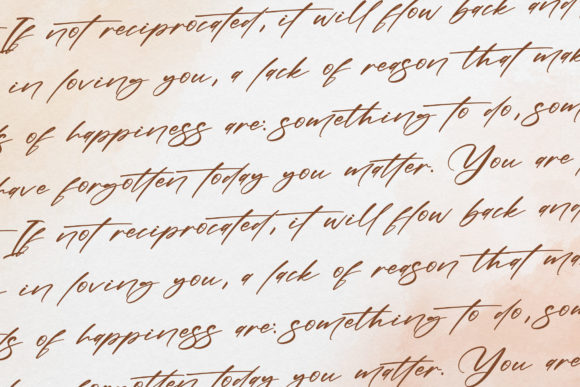 If not reciprocated, it will flow back and
in loving you, a lack of reason that mak
ds of happiness are: something to do, som
have forgotten today you matter. You are
If not reciprocated, it will flow back and
in loving you, a lack of reason that ma
ds of happiness are: something to do, som
forgotten today you matter. You are